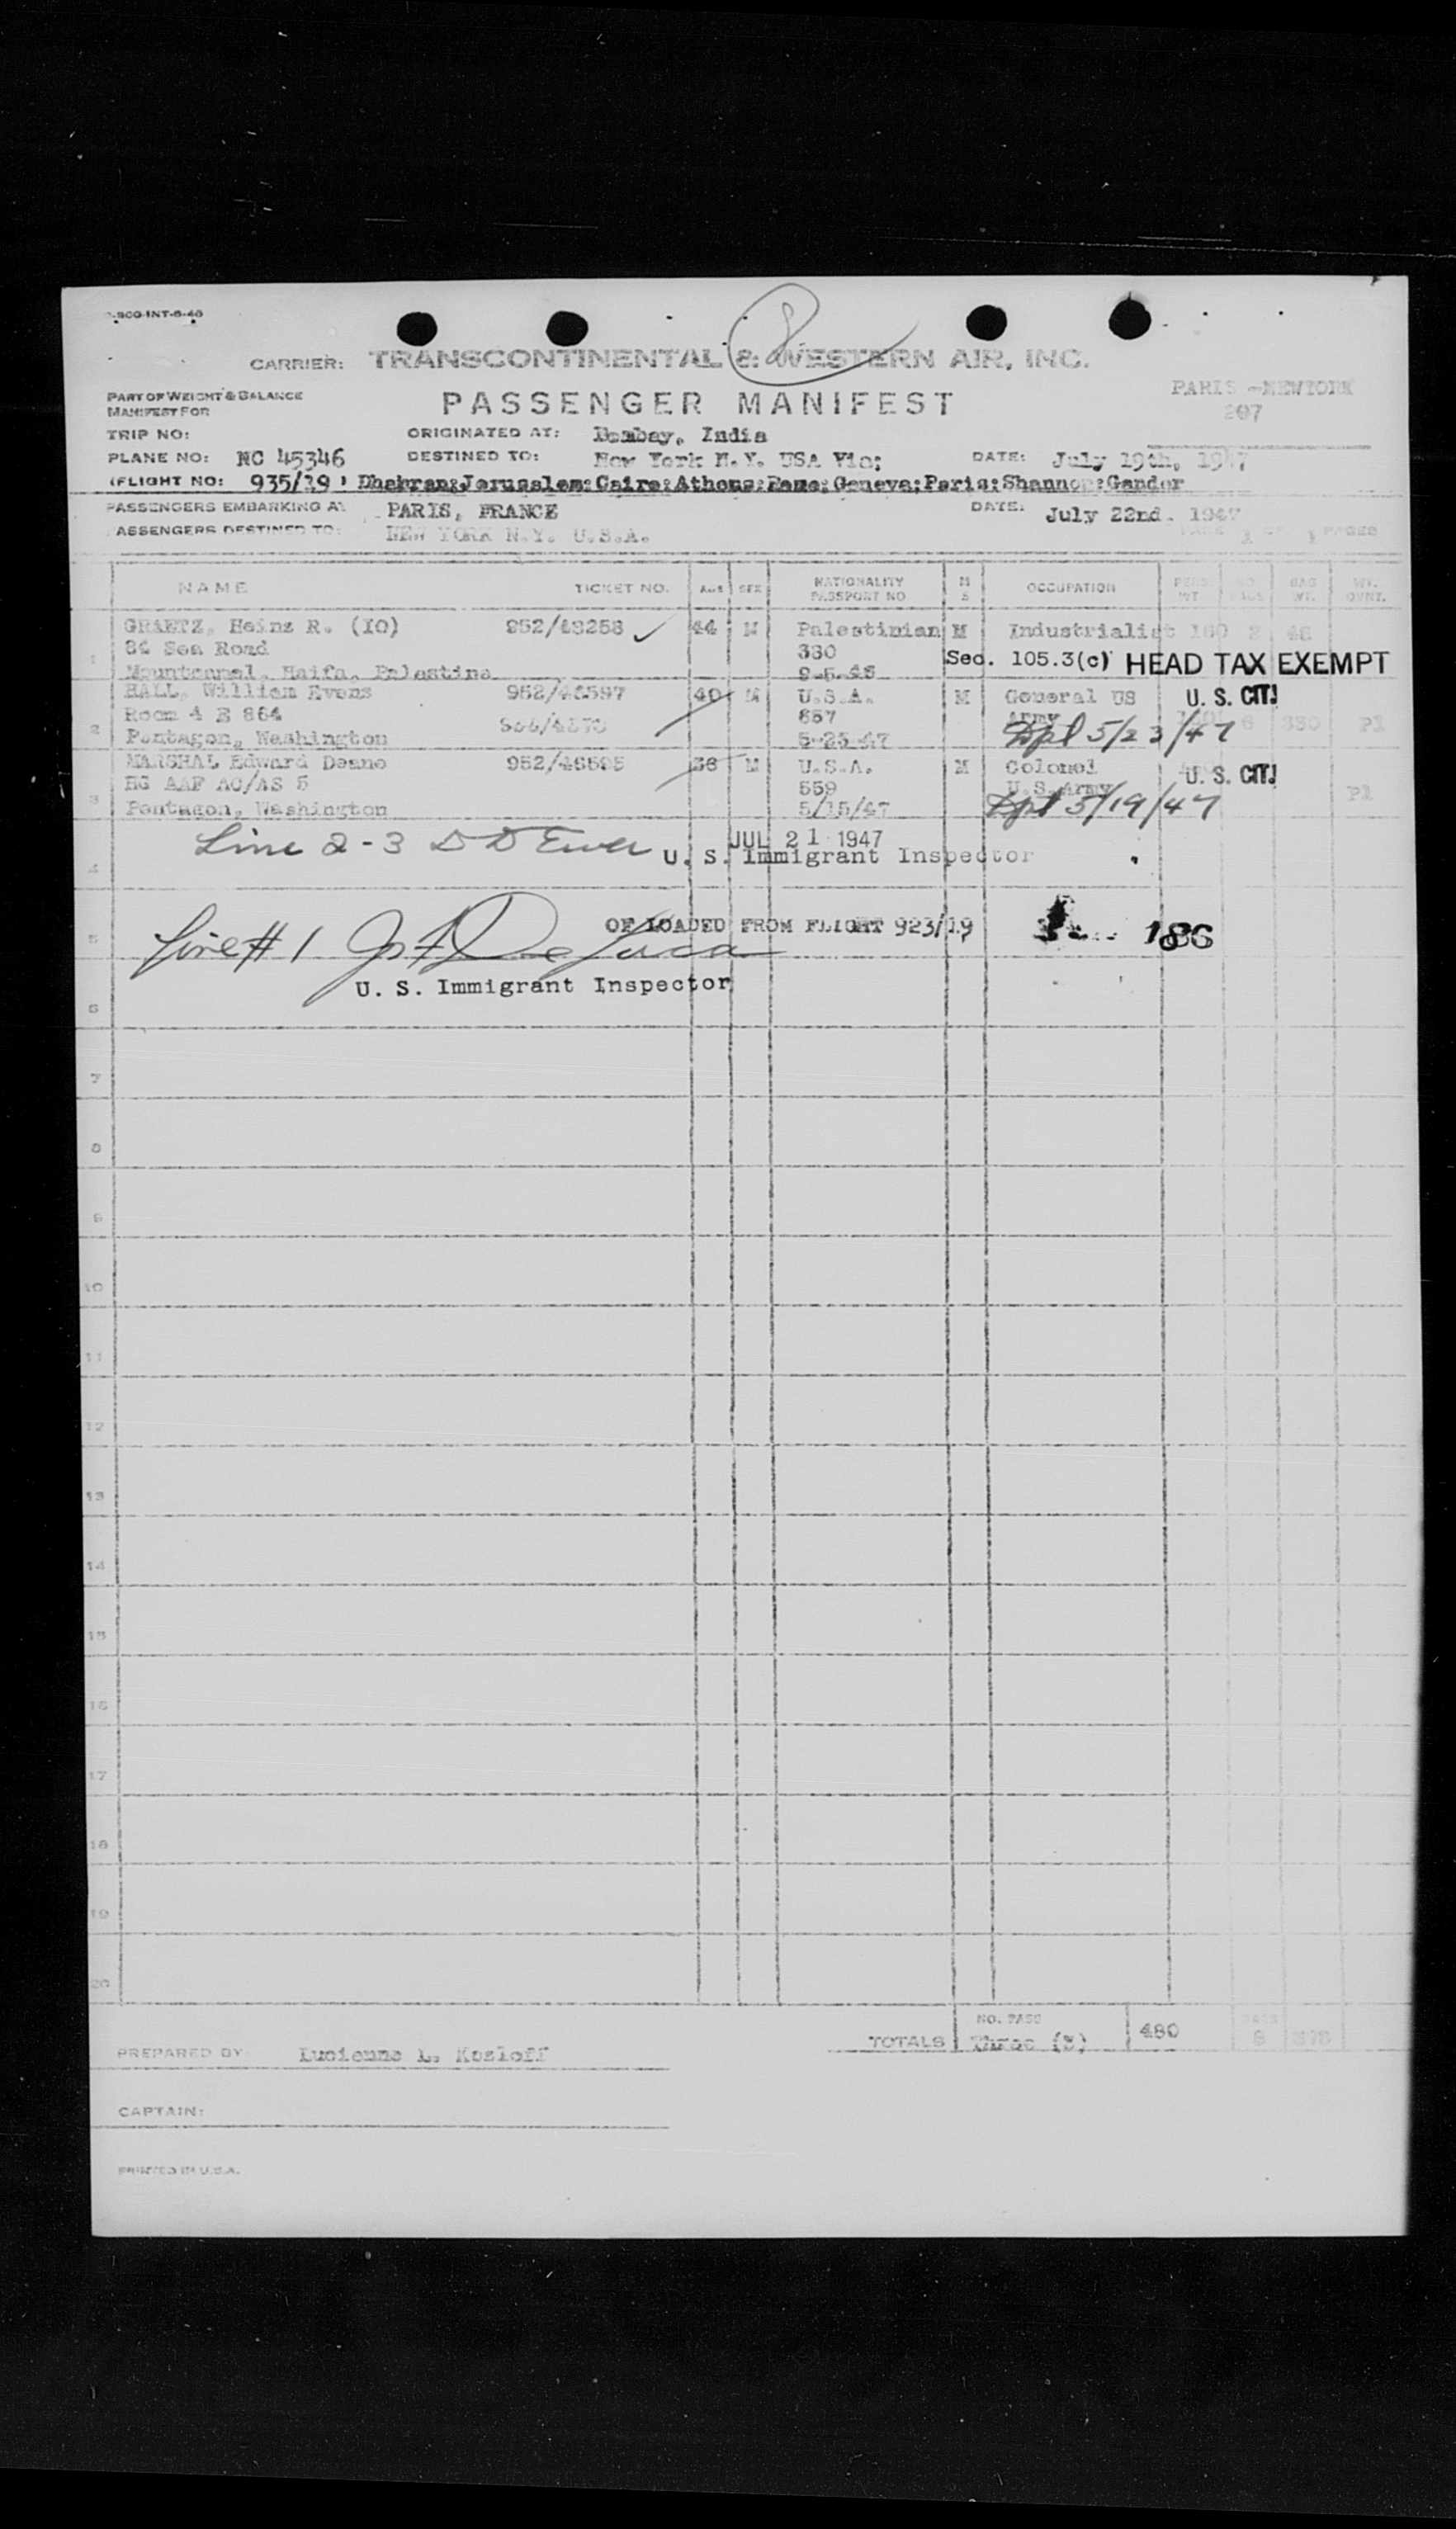 CARRIER: TRANSCONTINENTAL & WESTERN AIR, INC.
8
PART OF WEIGHT & BALANCE
MANIFEST FOR
PASSENGER MANIFEST
PARIS -NEWYORK
207
TRIP NO: ORIGINATED AT: Bombay, India
PLANE NO: NC 45346 DESTINED TO: New York N.Y. USA Via; DATE: July 19th, 1947
(FLIGHT NO: 935/19) Dhahran;Jerusalem;Cairo;Athens;Rome;Geneva;Paris;Shannon;Gander
PASSENGERS EMBARKING AT PARIS, FRANCE DATE: July 22nd. 1947
PASSENGERS DESTINED TO: NEW YORK N.Y. U.S.A. PAGES
NAME TICKET NO. AGE SEX NATIONALITY PASSPORT NO M S OCCUPATION PERS. WT BAG WT. WT. OVNT.
GRAETZ, Heinz R. (IO) 952/48258 44 M Palestinian M Industrialist 160 2 48
84 Sea Road 380
1 Mountcarmel, Haifa, Palestine 9-5-46 Sec. 105.3(c) HEAD TAX EXEMPT
HALL, William Evens 952/46597 40 M U.S.A. M General US U. S. CIT.
Room 4 E 864 657 Army 6 330 P1
2 Pentagon, Washington 5-23-47 Dpl 5/23/47
MARSHAL Edward Deane 952/46595 36 M U.S.A. M Colonel U. S. CIT.
HG AAF AC/AS 5 559 U.S.Army P1
3 Pentagon, Washington 5/15/47 Dpl 5/19/47
Line 2-3 JUL 21 1947
4 U. S. Immigrant Inspector
OF LOADED FROM FLIGHT 923/19 186
5 Line # 1
U. S. Immigrant Inspector
6
7
8
9
10
11
12
13
14
15
16
17
18
19
20
TOTALS NO. PASS Three (3) 480 8
PREPARED BY: Lucienne L. Kozloff
CAPTAIN:
PRINTED IN U.S.A.